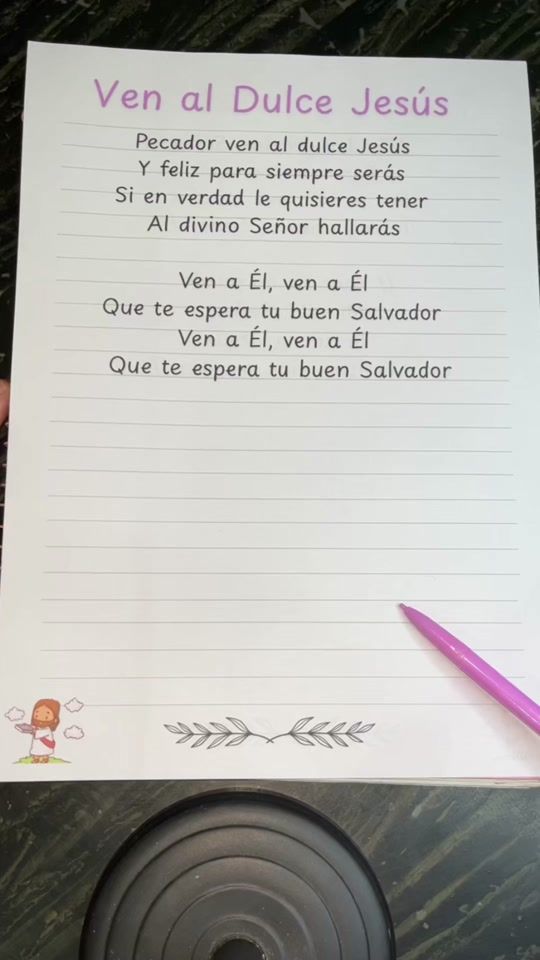 Ven al Dulce Jesús
Pecador ven al dulce Jesús
Y feliz para siempre serás
Si en verdad le quisieres tener
Al divino Señor hallarás
Ven a Él, ven a Él
Que te espera tu buen Salvador
Ven a Él, ven a Él
Que te espera tu buen Salvador